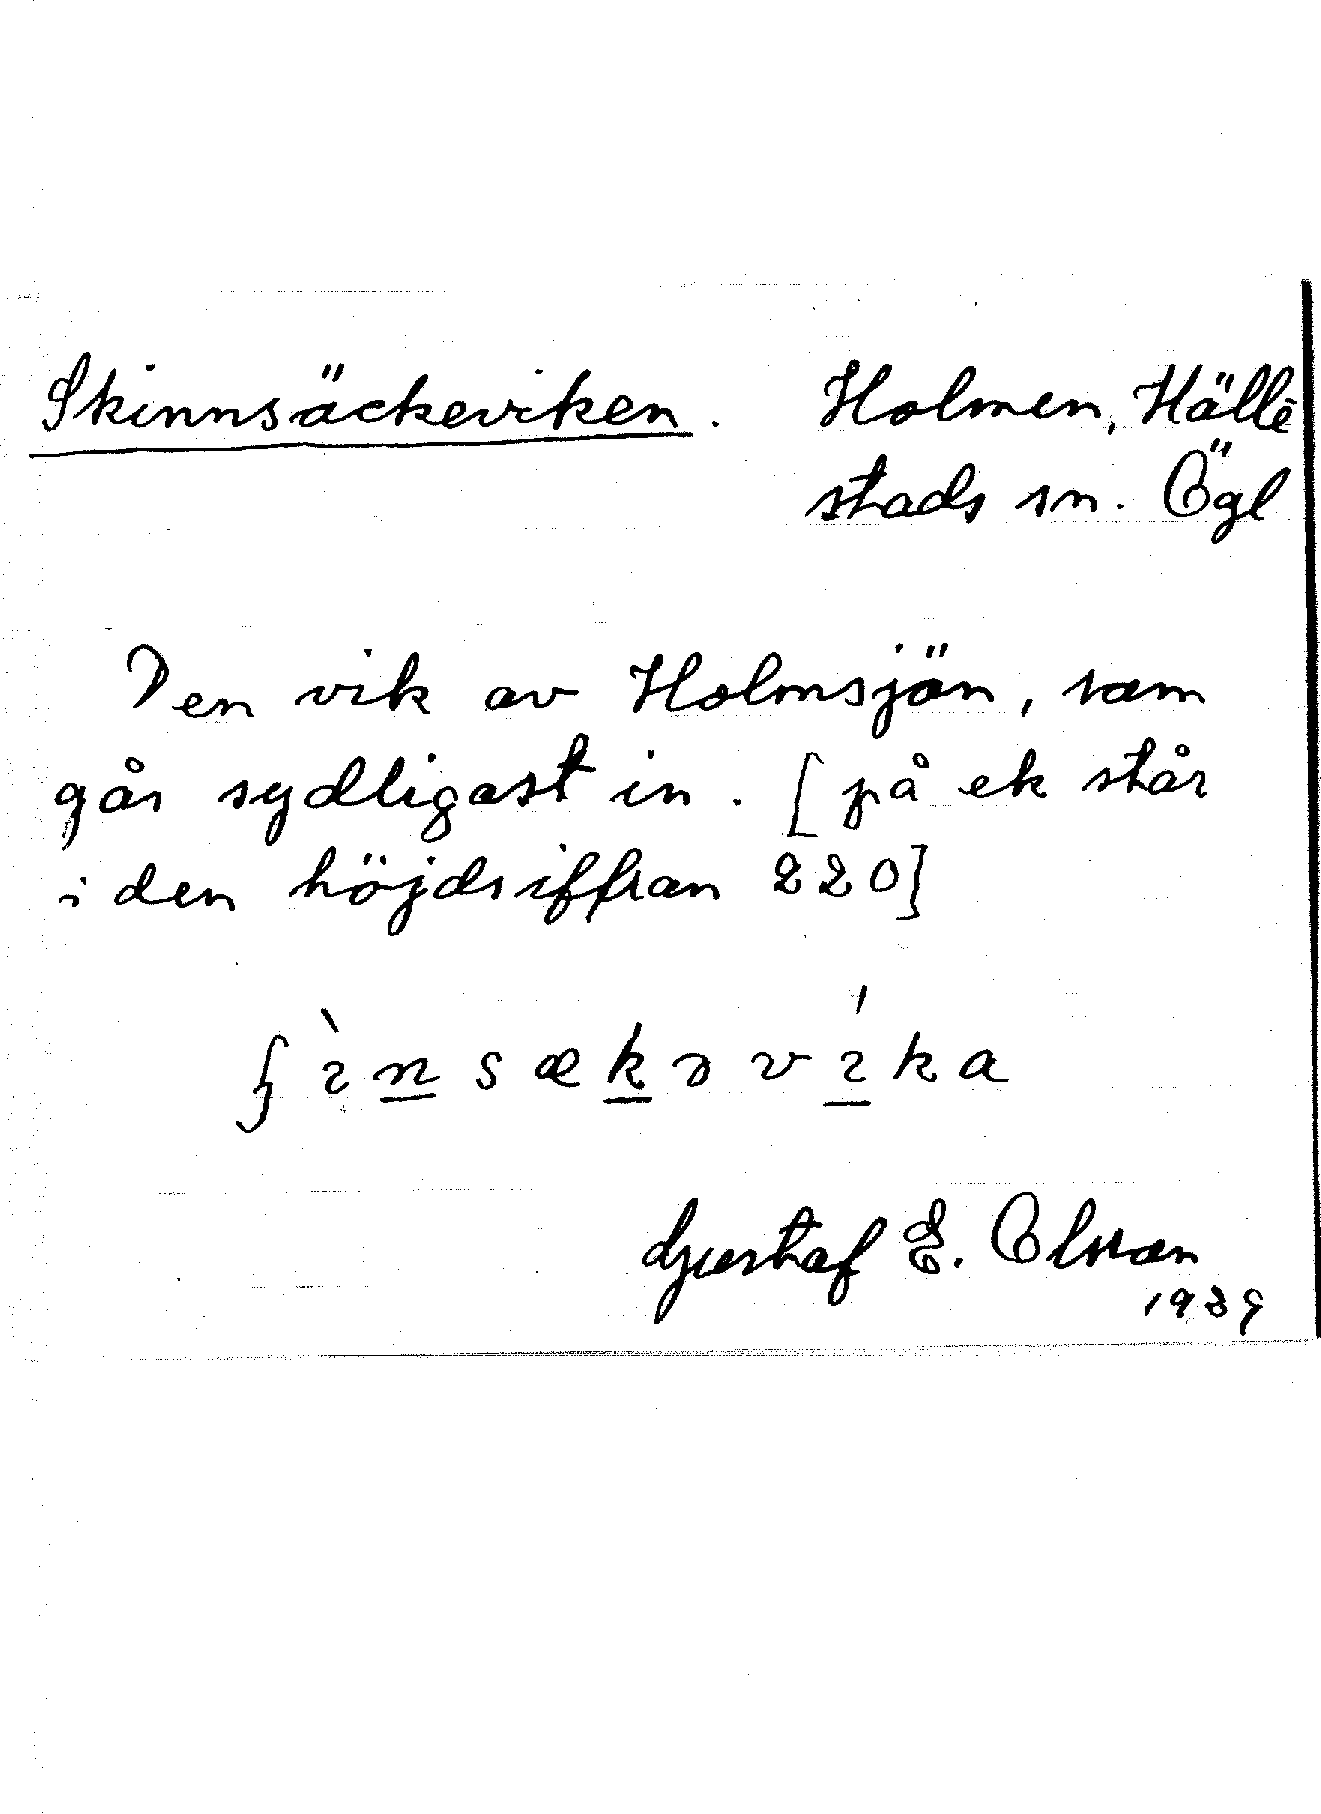 Skinnsäckeviken. Holmen, Hälle
stads sn. Ögl
Den vik av Holmsjön, som
går sydligast in. [på ek står
i den höjdsiffran 220]
ʃì<u>n</u>sæ<u>k</u>əv<u>í</u>ka
Gustaf E. Olsson
1939